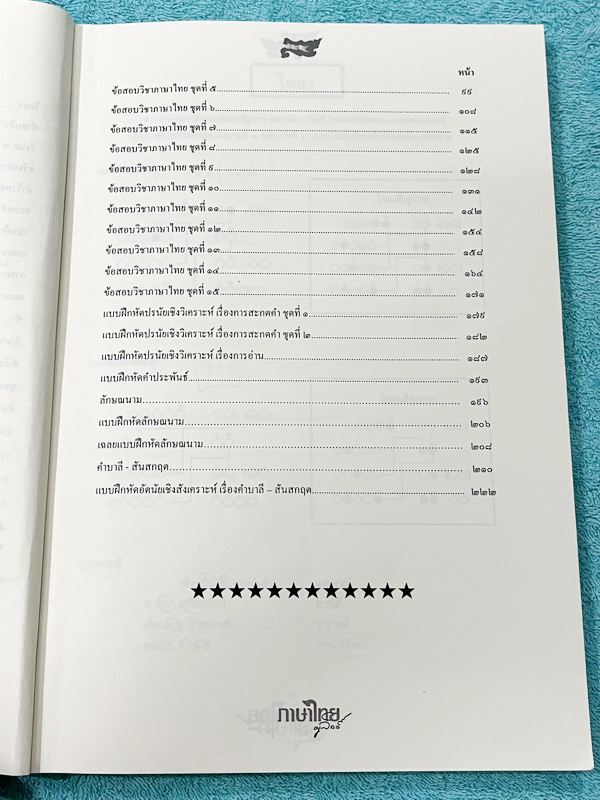 หน้า
ข้อสอบวิชาภาษาไทย ชุดที่ ๕ ๙๙
ข้อสอบวิชาภาษาไทย ชุดที่ ๖ ๑๐๘
ข้อสอบวิชาภาษาไทย ชุดที่ ๗ ๑๑๕
ข้อสอบวิชาภาษาไทย ชุดที่ ๘ ๑๒๕
ข้อสอบวิชาภาษาไทย ชุดที่ ๙ ๑๒๘
ข้อสอบวิชาภาษาไทย ชุดที่ ๑๐ ๑๓๑
ข้อสอบวิชาภาษาไทย ชุดที่ ๑๑ ๑๔๒
ข้อสอบวิชาภาษาไทย ชุดที่ ๑๒ ๑๕๔
ข้อสอบวิชาภาษาไทย ชุดที่ ๑๓ ๑๕๘
ข้อสอบวิชาภาษาไทย ชุดที่ ๑๔ ๑๖๔
ข้อสอบวิชาภาษาไทย ชุดที่ ๑๕ ๑๗๑
แบบฝึกหัดปรนัยเชิงวิเคราะห์ เรื่องการสะกดคำ ชุดที่ ๑ ๑๗๙
แบบฝึกหัดปรนัยเชิงวิเคราะห์ เรื่องการสะกดคำ ชุดที่ ๒ ๑๘๒
แบบฝึกหัดปรนัยเชิงวิเคราะห์ เรื่องการอ่าน ๑๘๗
แบบฝึกหัดคำประพันธ์ ๑๙๓
ลักษณนาม ๑๙๖
แบบฝึกหัดลักษณนาม ๒๐๖
เฉลยแบบฝึกหัดลักษณนาม ๒๐๘
คำบาลี - สันสกฤต ๒๑๐
แบบฝึกหัดอัตนัยเชิงสังเคราะห์ เรื่องคำบาลี – สันสกฤต ๒๒๒
★★★★★★★★★★★★
ภาษาไทย